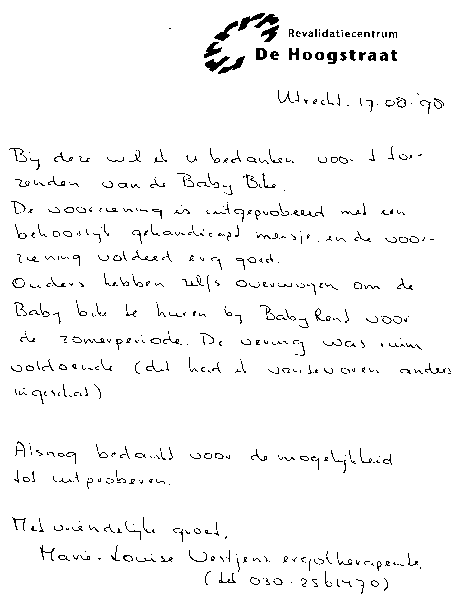 Revalidatiecentrum
De Hoogstraat
Utrecht. 17.08.'98
Bij deze wil ik u bedanken voor 't toe-
zenden van de Baby Bike.
De voorziening is uitgeprobeerd met een
behoorlijk gehandicapt meisje. en de voor-
ziening voldeed erg goed.
Ouders hebben zelfs overwogen om de
Baby bike te huren bij Baby Rent voor
de zomerperiode. De vering was ruim
voldoende (dat had ik van tevoren anders
ingeschat)
Alsnog bedankt voor de mogelijkheid
tot uitproberen.
Met vriendelijke groet,
Marie-Louise ergotherapeute.
(tel 030-2561470)